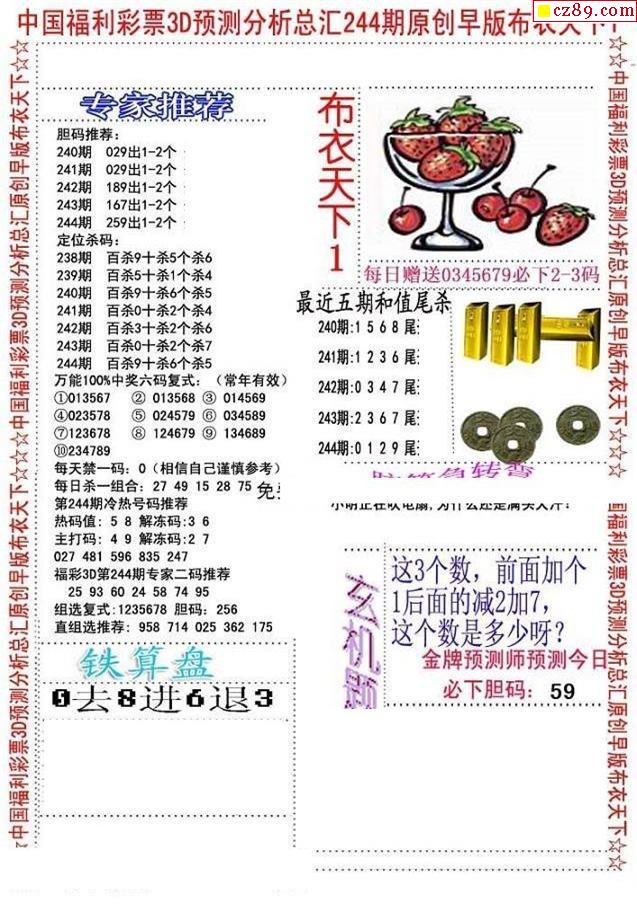 cz89.com
中国福利彩票3D预测分析总汇244期原创早版布衣天下1
☆☆中国福利彩票3D预测分析总汇原创早版布衣天下☆☆☆中国福利彩票3D预测分析总汇原创早版布衣天下☆☆
专家推荐
胆码推荐:
240期 029出1-2个
241期 029出1-2个
242期 189出1-2个
243期 167出1-2个
244期 259出1-2个
定位杀码:
238期 百杀9十杀5个杀6
239期 百杀5十杀1个杀4
240期 百杀9十杀6个杀5
241期 百杀0十杀2个杀4
242期 百杀3十杀2个杀6
243期 百杀0十杀2个杀7
244期 百杀9十杀6个杀5
万能100%中奖六码复式:(常年有效)
①013567 ② 013568 ③ 014569
④023578 ⑤ 024579 ⑥ 034589
⑦123678 ⑧ 124679 ⑨ 134689
⑩234789
每天禁一码: 0(相信自己谨慎参考)
每日杀一组合: 27 49 15 28 75
第244期冷热号码推荐
热码值: 5 8 解冻码:3 6
主打码: 4 9 解冻码:2 7
027 481 596 835 247
福彩3D第244期专家二码推荐
25 93 60 24 58 74 95
组选复式:1235678 胆码: 256
直组选推荐: 958 714 025 362 175
铁算盘
0去8进6退3
布衣天下1
每日赠送0345679必下2-3码
最近五期和值尾杀
240期:1 5 6 8 尾
241期:1 2 3 6 尾
242期:0 3 4 7 尾
243期:2 3 6 7 尾
244期:0 1 2 9 尾
脑筋急转弯
小明正在吹电扇,为什么还是满头大汗?
玄机题
这3个数，前面加个
1后面的减2加7，
这个数是多少呀?
金牌预测师预测今日
必下胆码: 59
☆☆中国福利彩票3D预测分析总汇原创早版布衣天下☆☆
中国福利彩票3D预测分析总汇原创早版布衣天下☆☆